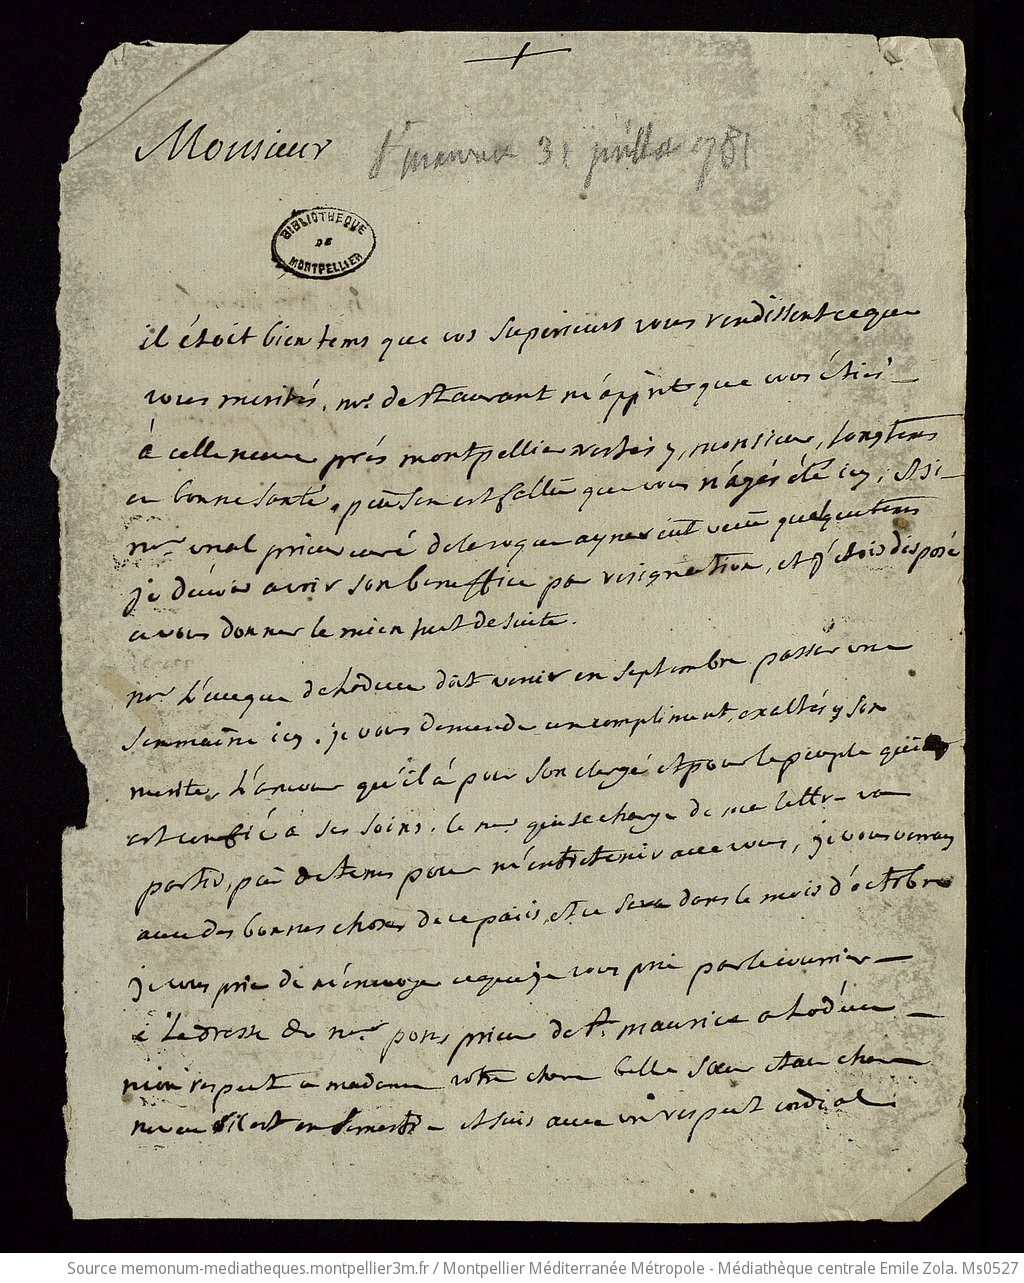 Monsieur St maurice 31 juillet 1781
BIBLIOTHEQUE
DE
MONTPELLIER
il étoit bien tems que vos superieurs vous rendissent ce que
vous merités. mr. de st laurant m'apprit que vous étiés
à celleneuve prés montpellier restés y, monsieur, longtems
en bonne santé, peu s'en est fallu que vous n'ayés été icy, et si
mr. vival prieur curé de aynes eut vecu quelque tems
je devois avoir son beneffice par resignation, et j'etois disposé
a vous donner le mien tout de suite.
mr L'eveque de Lodeve doit venir en septembre passer une
semmaine icy. je vous demende un compliment, exaltés y son
merite, L'amour qu'il a pour son clergé et pour le peuple qui
est confié à ses soins. le mr qui se charge de ma lettre va
partir, peu de tems pour m'entretenir avec vous, je vous verray
avec des bonnes choses de ce païs, et ce sera dans le mois d'octobre
je vous prie de m'envoyer ce que je vous prie par le courrier
à L'adresse de mr pons prieur de st. maurice a Lodeve
mon respect a madame votre chere belle sœur et au cher
neveu s'il est en semestre et suis avec un respect cordial
Source memonum-mediatheques.montpellier3m.fr / Montpellier Méditerranée Métropole - Médiathèque centrale Emile Zola. Ms0527